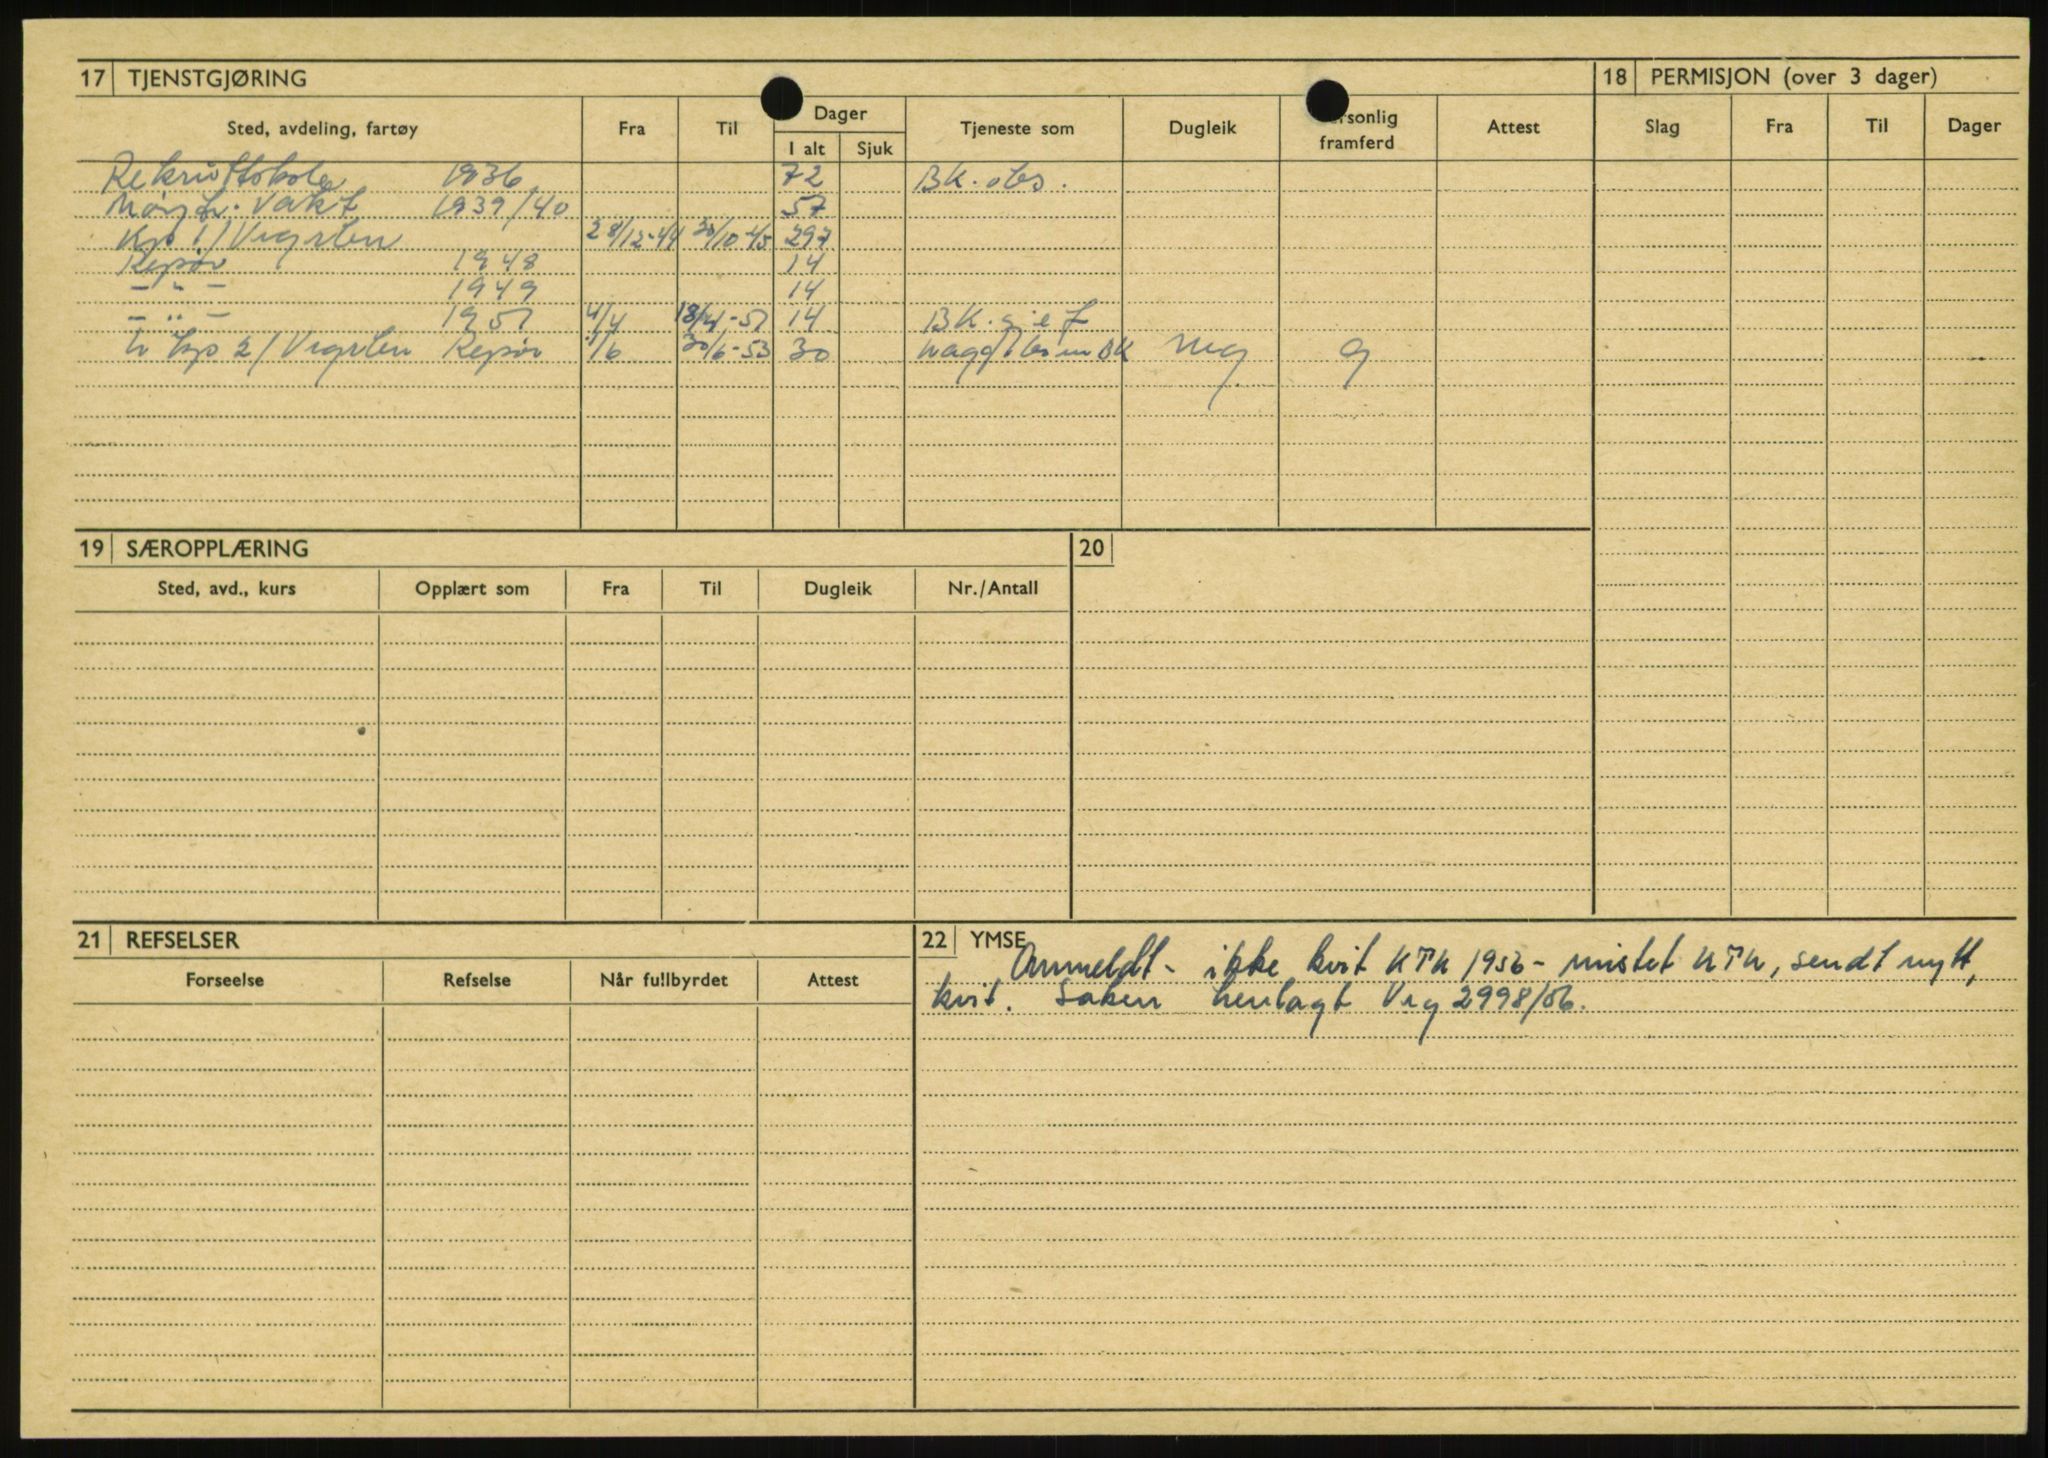 17 TJENSTGJØRING 18 PERMISJON (over 3 dager)
Sted, avdeling, fartøy Fra Til Dager Tjeneste som Dugleik ersonlig framferd Attest Slag Fra Til Dager
I alt Sjuk
Rekruttskole 1936 72 BK. obs.
Nøytr. vakt 1939/40 57
Kp 1/Vegsten 28/12-44 30/10-45 297
Repøv 1948 14
- " - 1949 14
- " - 1951 4/4 18/4-51 14 BK.
2/Vegsten Repøv 1/6 30/6-53 30 BK Mg g
19 SÆROPPLÆRING 20
Sted, avd., kurs Opplært som Fra Til Dugleik Nr./Antall
21 REFSELSER 22 YMSE
Forseelse Refselse Når fullbyrdet Attest
Anmeldt - ikke kvit KTK 1956 - mistet KTK, sendt nytt,
kvit. Saken henlagt Vrg 2998/56.